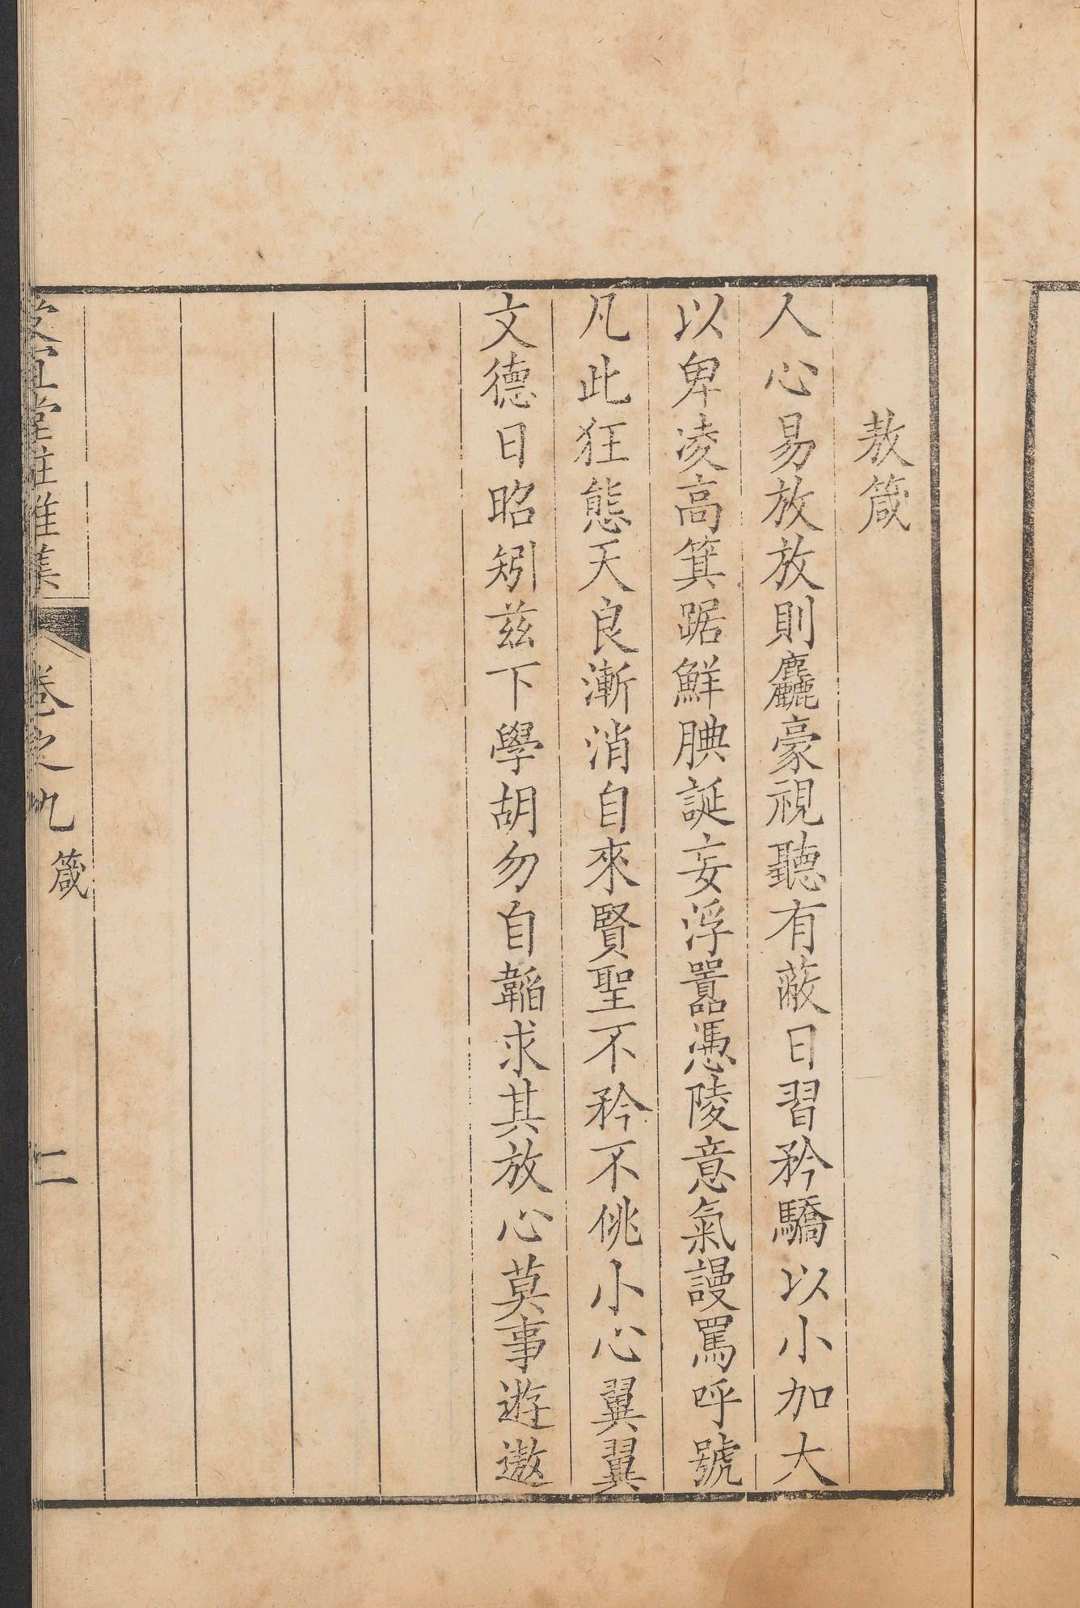 敖箴
人心易放放則麤豪視聽有蔽日習矜驕以小加大
以卑凌高箕踞鮮腆誕妄浮囂憑陵意氣謾罵呼號
凡此狂態天良漸消自來賢聖不矜不佻小心翼翼
文德日昭矧茲下學胡勿自韜求其放心莫事遊遨
宜堂 集
卷之九 箴
二